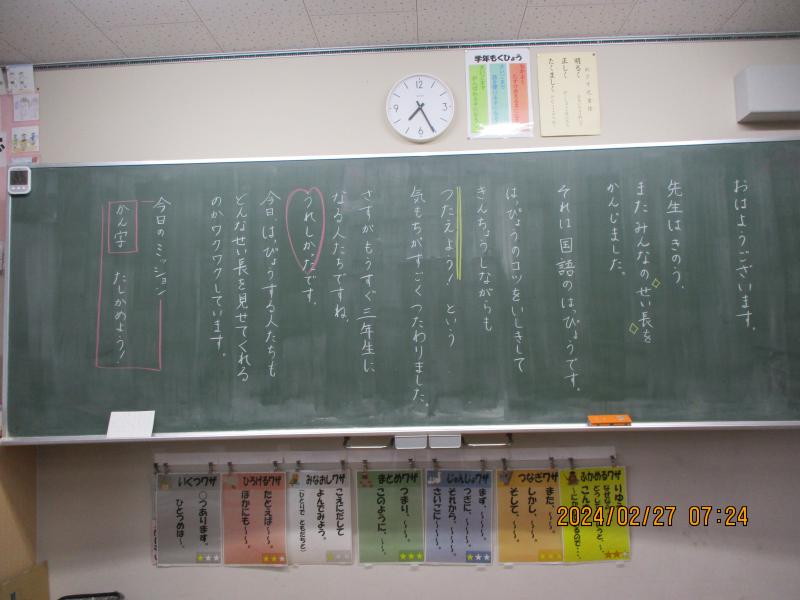 おはようございます。
先生はきのう、
またみんなのせい長を
かんじました。
それは国語のはっぴょうです。
はっぴょうのコツをいしきして
きんちょうしながらも
つたえよう！という
気もちがすごくつたわりました。
さすがもうすぐ三年生に
なる人たちですね。
うれしかったです。
今日は、はっぴょうする人たちも
どんなせい長を見せてくれる
のかワクワクしています。
今日のミッション
かん字 たしかめよう！
学年もくひょう
明るく
正しく
たくましく
いくつワザ
○つあります。
ひとつめは～、
ひろげるワザ
たとえば～。
ほかにも～。
みなおしワザ
こえにだして
よんでみよう。
(ひとりで ともだちと)
まとめワザ
つまり、～～。
このように、～。
じゅんじょワザ
まず、～～。
つぎに、～～。
それから、～～。
さいごに～～。
つなぎワザ
また、～～。
しかし、～～。
そして、～～。
ふかめるワザ
2024/02/27 07:24